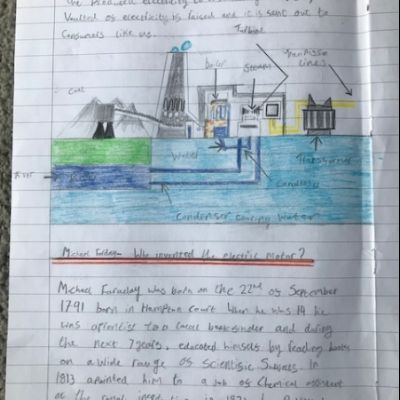 the produced electricity to
Voulted of electricity is raised and it is sent out to
Consumers like us.
Turbine
Transmission
lines
Steam
Boiler
Coal
Water
Transformer
River
Condenser
Condenser Cooling Water
Michael Faraday - Who invented the electric motor?
Michael Faraday was born on the 22nd of September
1791 born in Hampton Court when he was 14 he
was aprentist to a local bookbinder and during
the next 7 years, educated himself by reading books
on a wide range of scientific In
1813 apointed him to a Job of Chemical assistent
at the royal